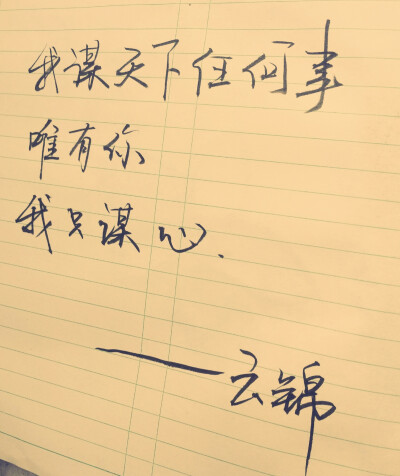 我谋天下任何事
唯有你
我只谋心.
——云锦